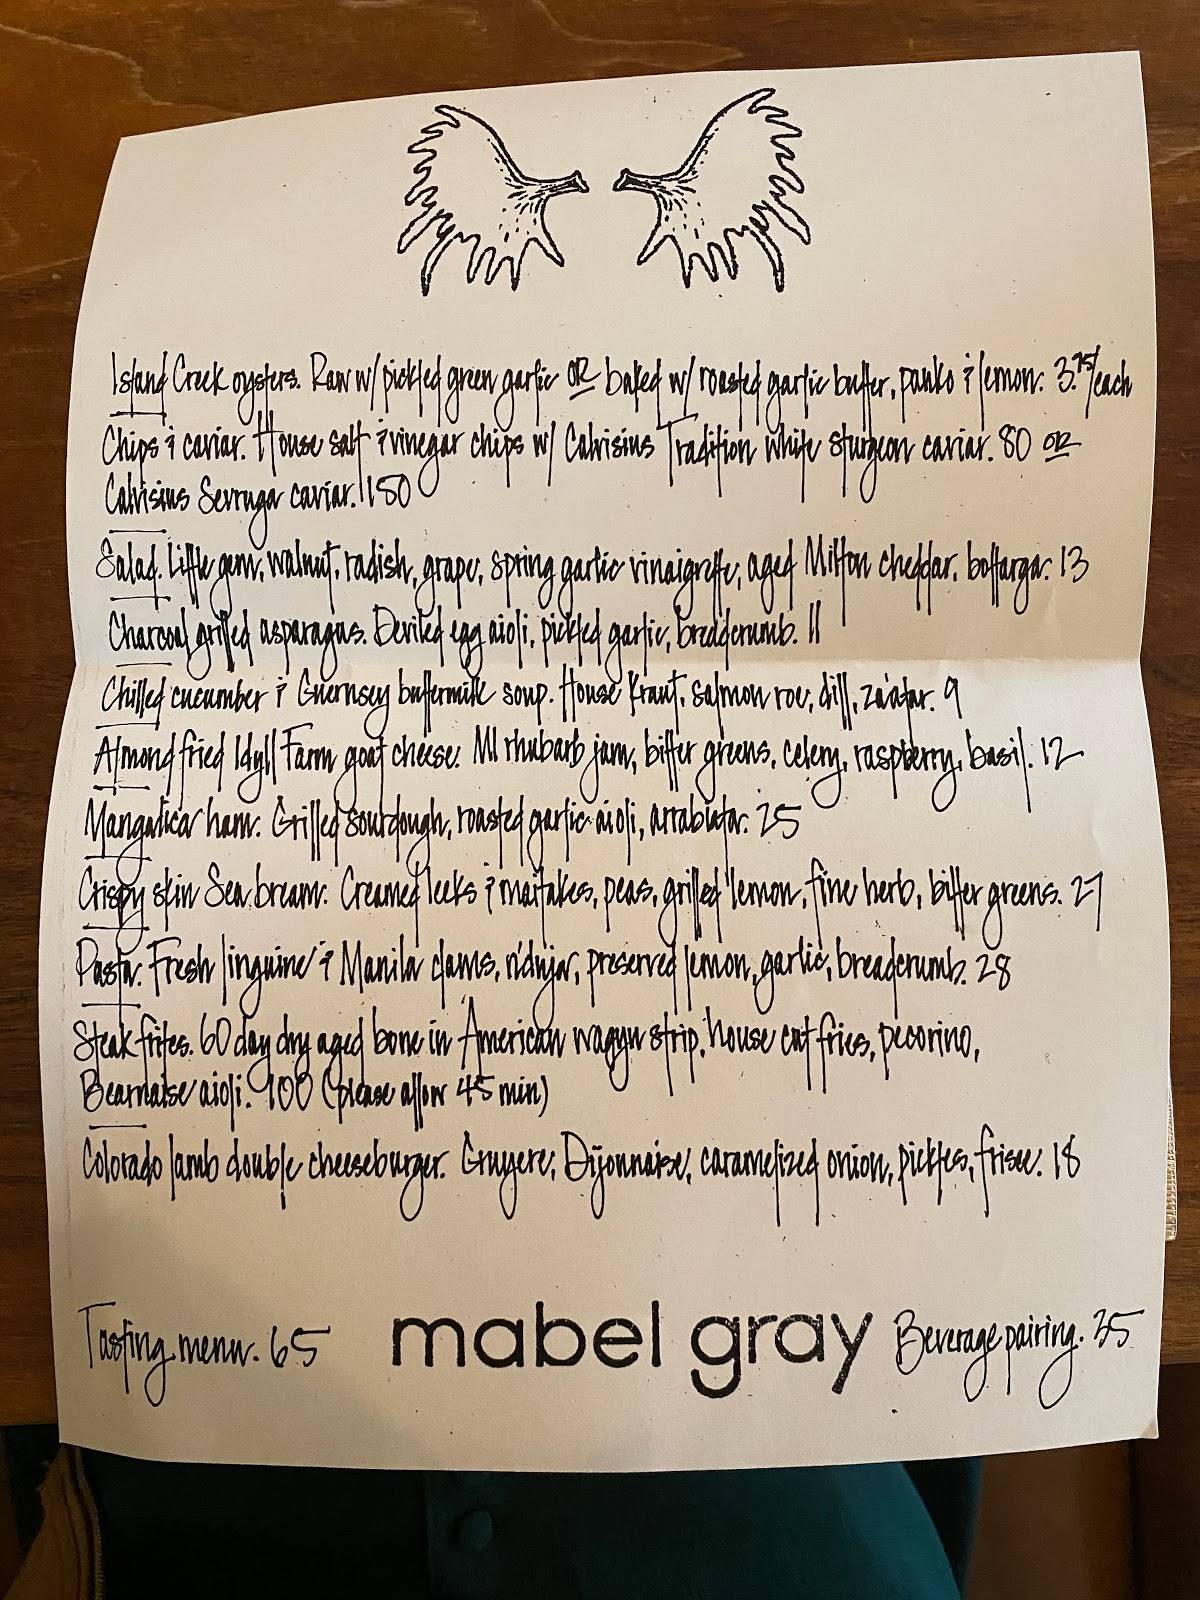 Island Creek oysters. Raw w/ pickled green garlic OR baked w/ roasted garlic butter, panko & lemon. 3.75/each
Chips & caviar. House salt & vinegar chips w/ Calvisius Tradition white sturgeon caviar. 80 OR
Calvisius Sevruga caviar. 150
Salad. Little gem, walnut, radish, grape, spring garlic vinaigrette, aged Milton cheddar, bottarga. 13
Charcoal grilled asparagus. Deviled egg aioli, pickled garlic, breadcrumb. 11
Chilled cucumber & Guernsey buttermilk soup. House Kraut, salmon roe, dill, za'atar. 9
Almond fried Idyll Farm goat cheese. MI rhubarb jam, bitter greens, celery, raspberry, basil. 12
Mangalica ham. Grilled sourdough, roasted garlic aioli, arrabiata. 25
Crispy skin Sea bream. Creamed leeks & maitakes, peas, grilled lemon, fine herb, bitter greens. 27
Pasta. Fresh linguine & Manila clams, n'duja, preserved lemon, garlic, breadcrumb. 28
Steak frites. 60 day dry aged bone in American wagyu strip, house cut fries, pecorino,
Bearnaise aioli. 900 (please allow 45 min)
Colorado lamb double cheeseburger. Gruyere, Dijonnaise, caramelized onion, pickles, frisee. 18
Tasting menu. 65
mabel gray
Beverage pairing. 35